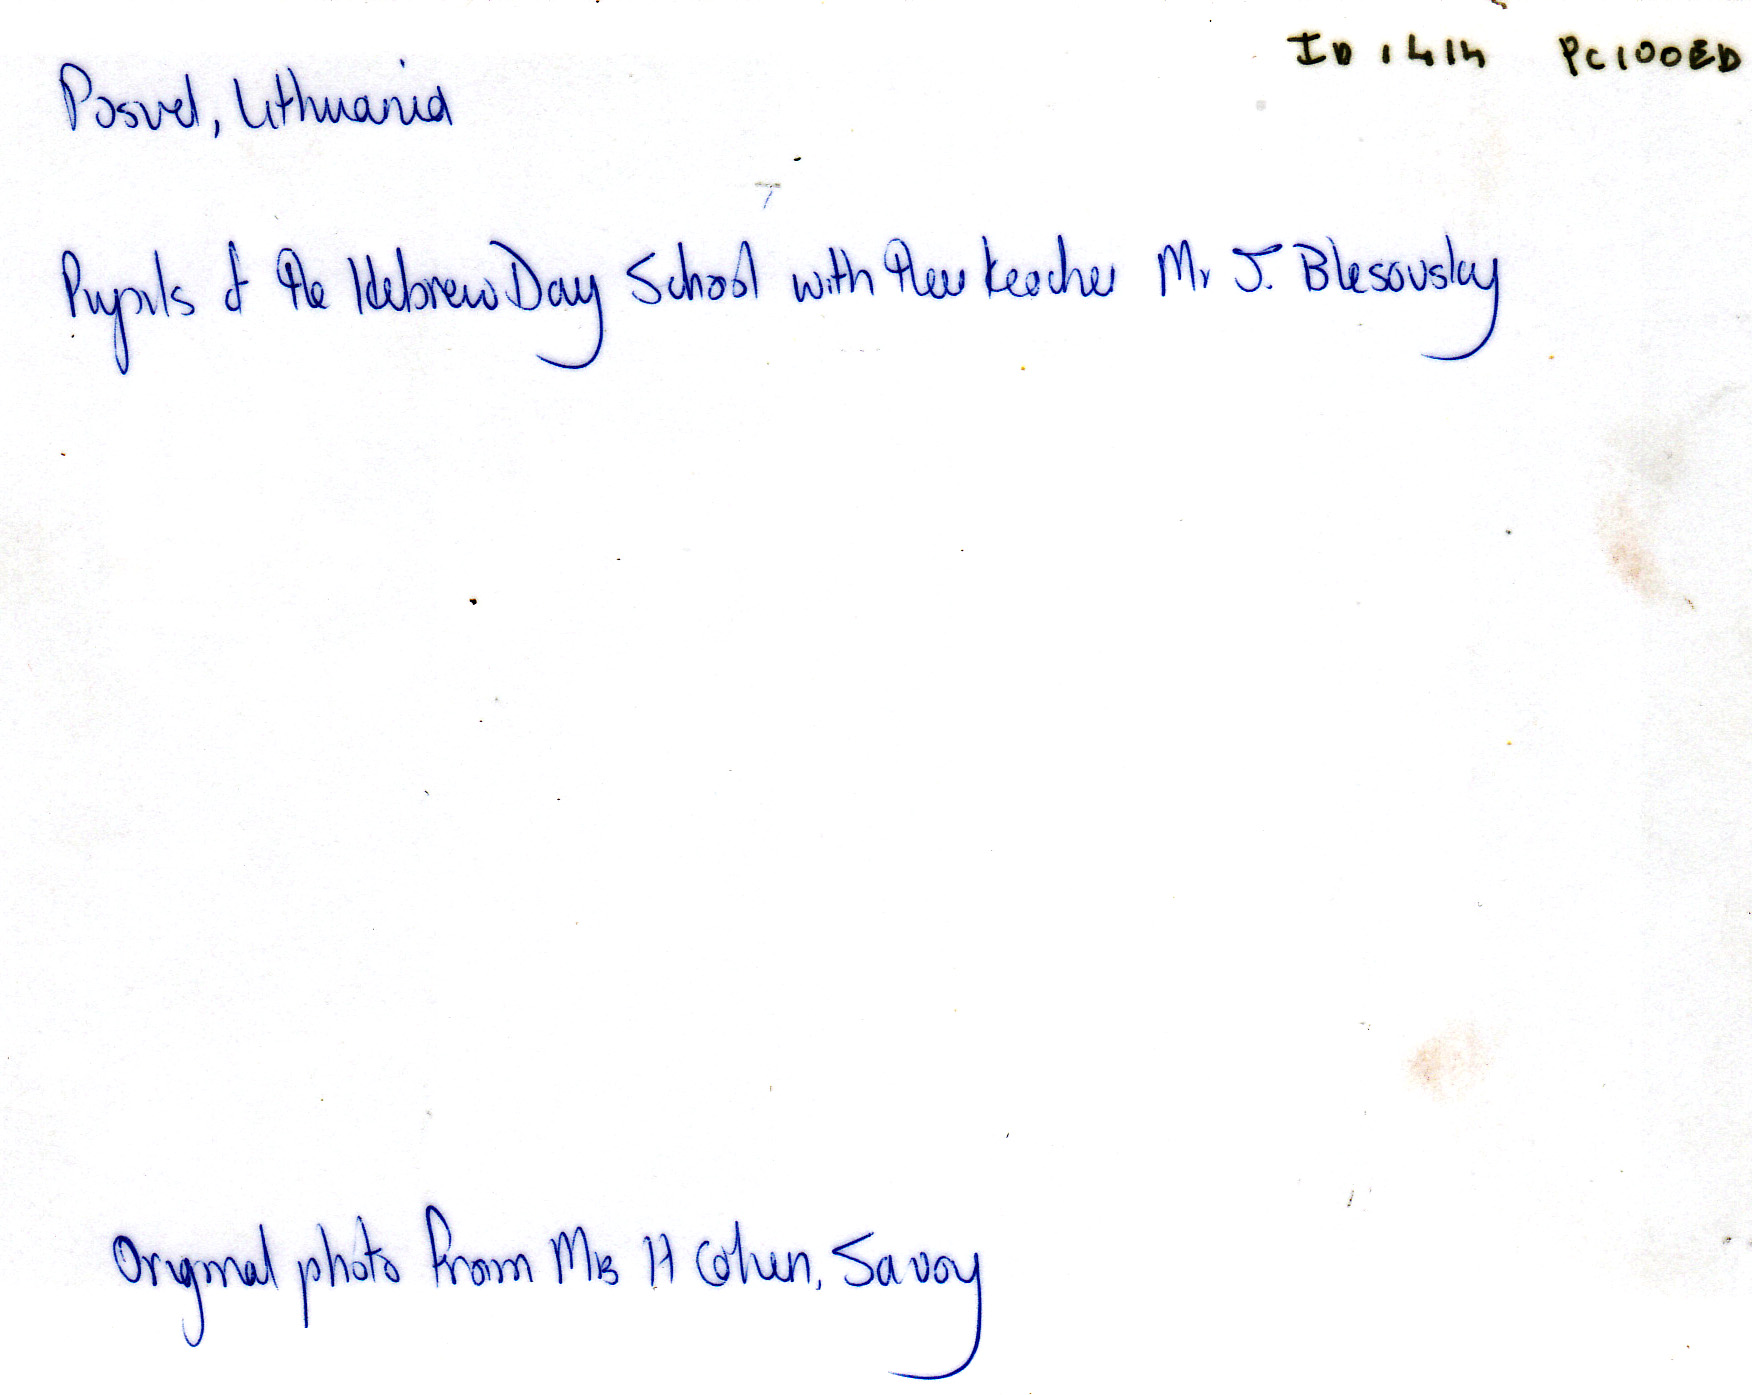 ID 1414 PC100ED
Posvel, Lithuania
Pupils of the Hebrew Day School with their teacher Mr J. Blesovsky
Original photo from Mrs H Cohen, Savoy